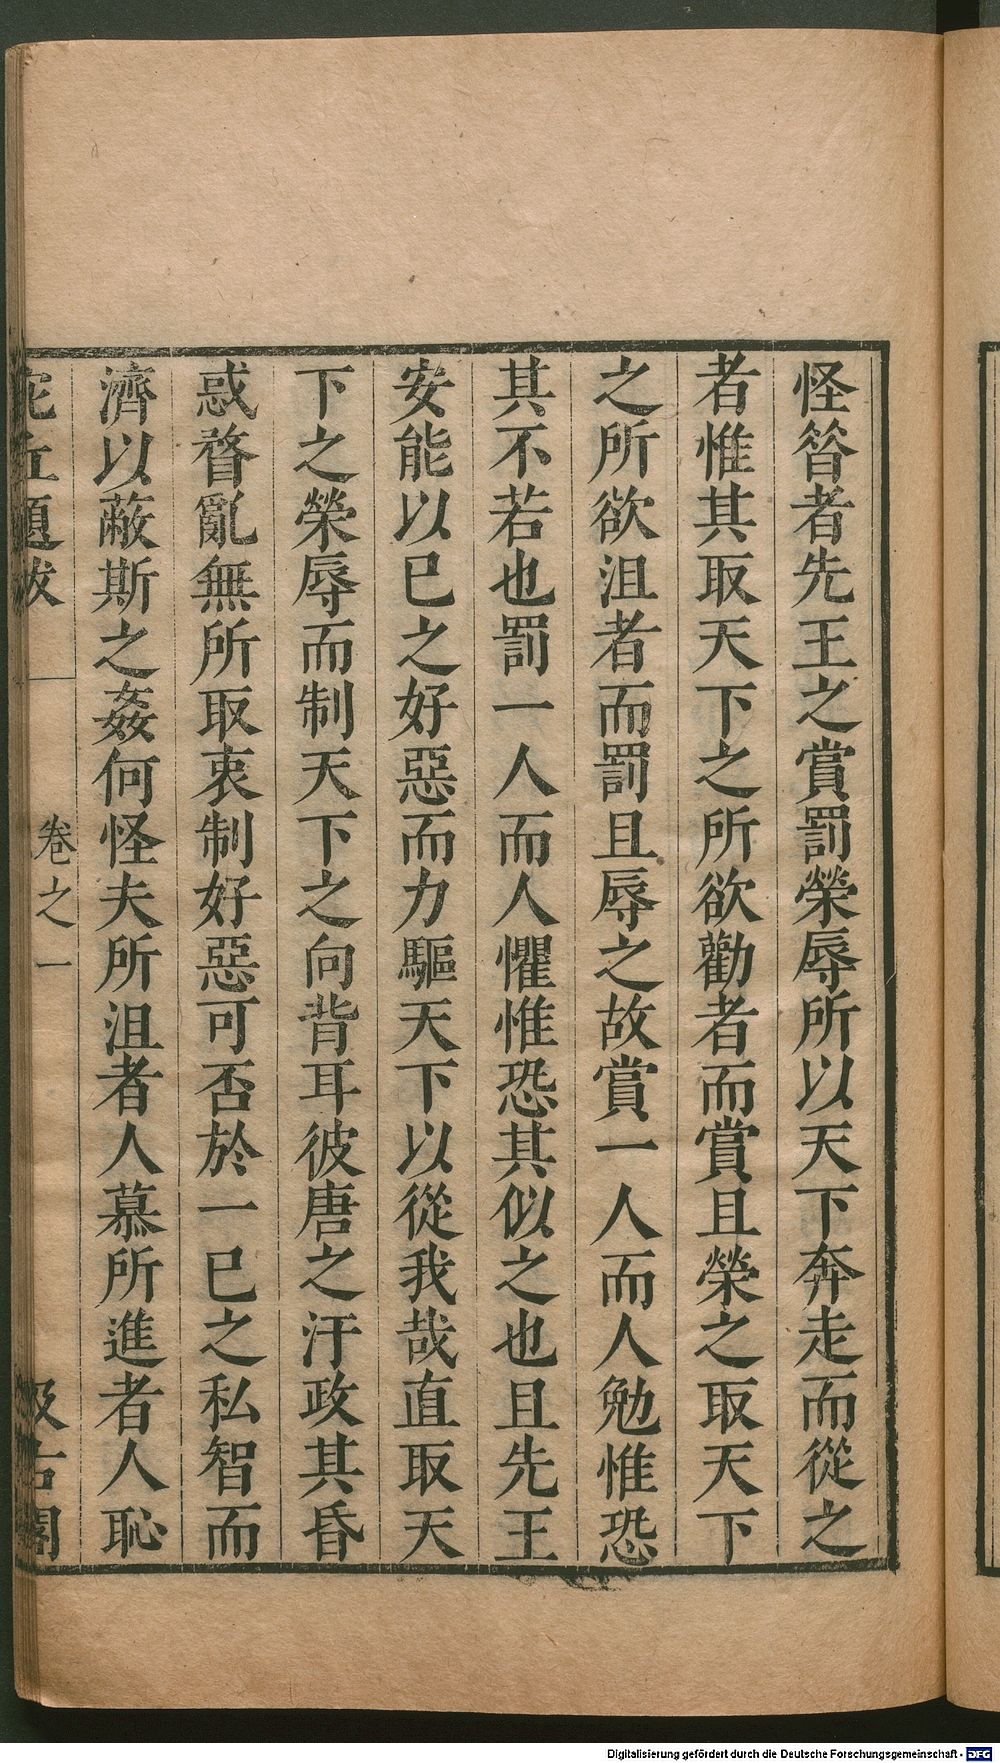 怪昝者先王之賞罰榮辱所以天下奔走而從之
者惟其取天下之所欲勸者而賞且榮之取天下
之所欲沮者而罰且辱之故賞一人而人勉惟恐
其不若也罰一人而人懼惟恐其似之也且先王
安能以已之好惡而力驅天下以從我哉直取天
下之榮辱而制天下之向背耳彼唐之汙政其昏
惑瞀亂無所取衷制好惡可否於一已之私智而
濟以蔽斯之姦何怪夫所沮者人慕所進者人恥
題跋 卷之一 汲古閣
Digitalisierung gefördert durch die Deutsche Forschungsgemeinschaft - DFG